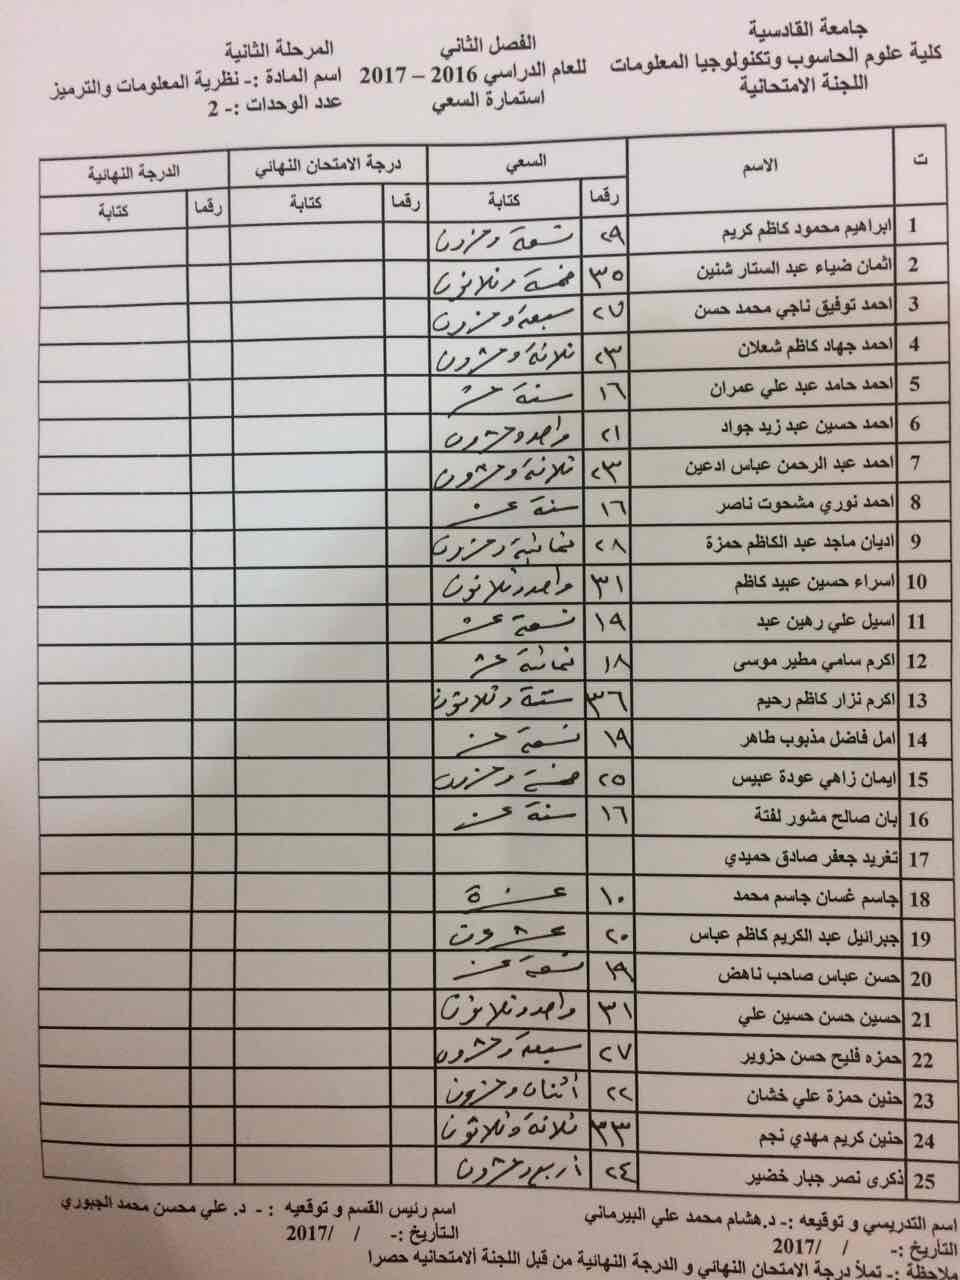 جامعة القادسية
كلية علوم الحاسوب وتكنولوجيا المعلومات
اللجنة الامتحانية
الفصل الثاني
للعام الدراسي 2016 – 2017
استمارة السعي
المرحلة الثانية
اسم المادة :- نظرية المعلومات والترميز
عدد الوحدات :- 2
ت الاسم السعي درجة الامتحان النهائي الدرجة النهائية
رقما كتابة رقما كتابة رقما كتابة
1 ابراهيم محمود كاظم كريم ٢٩ تسعة وعشرون
2 اثمان ضياء عبد الستار شنين ٣٥ خمسة وثلاثون
3 احمد توفيق ناجي محمد حسن ٢٧ سبعة وعشرون
4 احمد جهاد كاظم شعلان ٢٣ ثلاثة وعشرون
5 احمد حامد عبد علي عمران ١٦ ستة عشر
6 احمد حسين عبد زيد جواد ٢١ واحد وعشرون
7 احمد عبد الرحمن عباس ادعين ٢٣ ثلاثة وعشرون
8 احمد نوري مشحوت ناصر ١٦ ستة عشر
9 اديان ماجد عبد الكاظم حمزة ٢٨ ثمانية وعشرون
10 اسراء حسين عبيد كاظم ٣١ واحد وثلاثون
11 اسيل علي رهين عبد ١٩ تسعة عشر
12 اكرم سامي مطير موسى ١٨ ثمانية عشر
13 اكرم نزار كاظم رحيم ٣٦ ستة وثلاثون
14 امل فاضل مذبوب طاهر ١٩ تسعة عشر
15 ايمان زاهي عودة عبيس ٢٥ خمسة وعشرون
16 بان صالح مشور لفتة ١٦ ستة عشر
17 تغريد جعفر صادق حميدي
18 جاسم غسان جاسم محمد ١٠ عشرة
19 جبرائيل عبد الكريم كاظم عباس ٢٠ عشرون
20 حسن عباس صاحب ناهض ١٩ تسعة عشر
21 حسين حسن حسين علي ٣١ واحد وثلاثون
22 حمزه فليح حسن حزوير ٢٧ سبعة وعشرون
23 حنين حمزة علي خشان ٢٢ أثنان وعشرون
24 حنين كريم مهدي نجم ٣٣ ثلاثة وثلاثون
25 ذكرى نصر جبار خضير ٢٤ أربع وعشرون
اسم التدريسي و توقيعه :- د.هشام محمد علي البيرماني
اسم رئيس القسم و توقيعه :- د. علي محسن محمد الجبوري
التأريخ :- / /2017
التأريخ :- / /2017
ملاحظة :- تملأ درجة الامتحان النهائي و الدرجة النهائية من قبل اللجنة ألامتحانيه حصرا